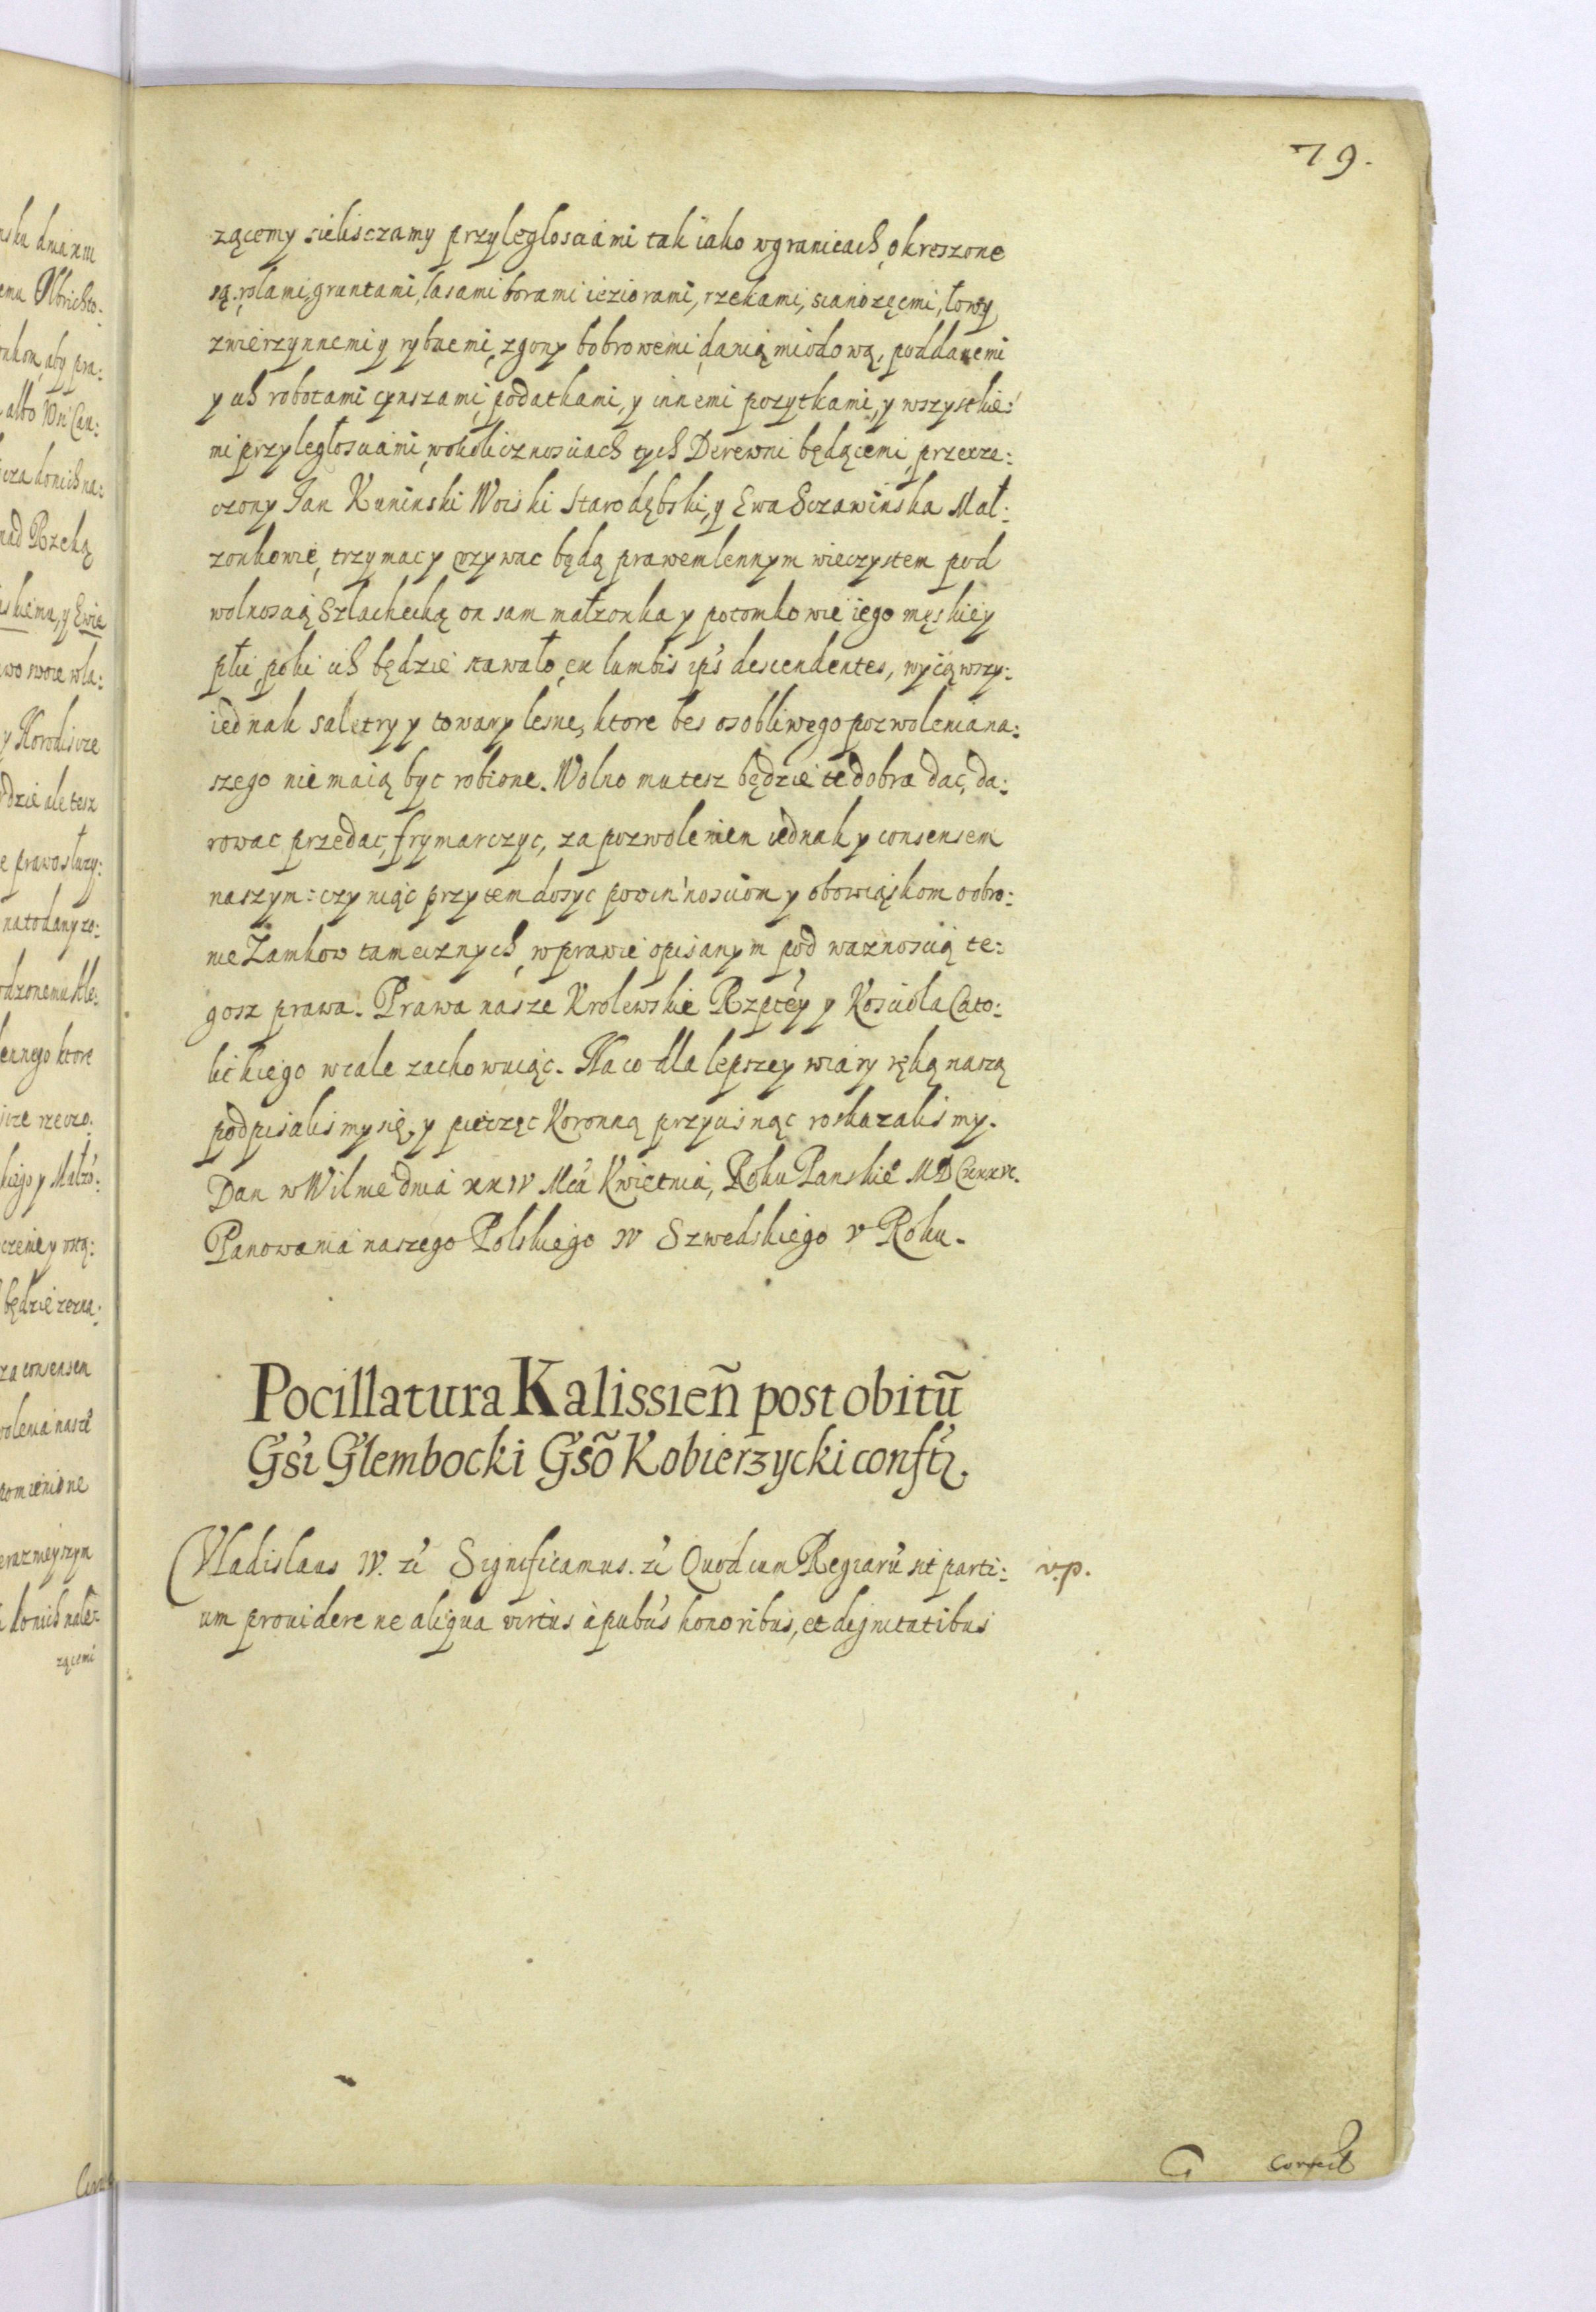 79.
zącemy sieliszczamy przyległosciami tak iako w granicach okreszone
są, rolami, gruntami, lasami borami ieziorami, rzekami, scianozęcmi, łowy
zwierzynnemi y rybnemi, zgony bobrowemi, danią miodową, poddanemi
y ich robotami cynszami, podatkami, y innemi pozytkami, y wszystkie:
mi przyległosciami, w okolicznosciach tych Derewni będącemi, przerze:
czony Jan Kuninski Woiski Starodębski, y Ewa Sczawinska Mał:
zonkowie, trzymac y vzywac będą prawem lennym wieczystem pod
wolnoscią Szlachecką on sam małzonka y potomkowie iego męskiey
płci, poki ich będzie stawało, ex lumbis ip's descendentes, wyiąwszy:
iednak saletry y towary lesne, ktore bes osobliwego pozwolenia na:
szego nie maią byc robione. Wolno mu tesz będzie te dobra dac, da:
rowac przedac, frymarczyc, za pozwoleniem iednak y consensem
naszym: czyniąc przytem dosyc powinnosciom y obowiąskom o obro:
nie Zamkow tamecznych, w prawie opisanym pod waznoscią te:
gosz prawa. Prawa nasze Krolewskie Rzptey y Kosciola Cato:
lickiego wcale zachowuiąc. Na co dla lepszey wiary ręką naszą
podpisalismy się, y pieczęc Koronną przycisnąc roskazalismy.
Dan w Wilnie dnia xxıv Mca Kwietnia, Roku Panskie MDCxxxvı.
Panowania naszego Polskiego ıv Szwedskiego v Roku.
Pocillatura Kalissień post obitū
Gsi Glembocki Gsō Kobierzycki conftȝ.
Vladislaus IV. zc Significamus. zc Quod cum Regiarū sit parti: v.p.
um prouidere ne aliqua virtus à pubcis honoribus, et dignitatibus
G Correct